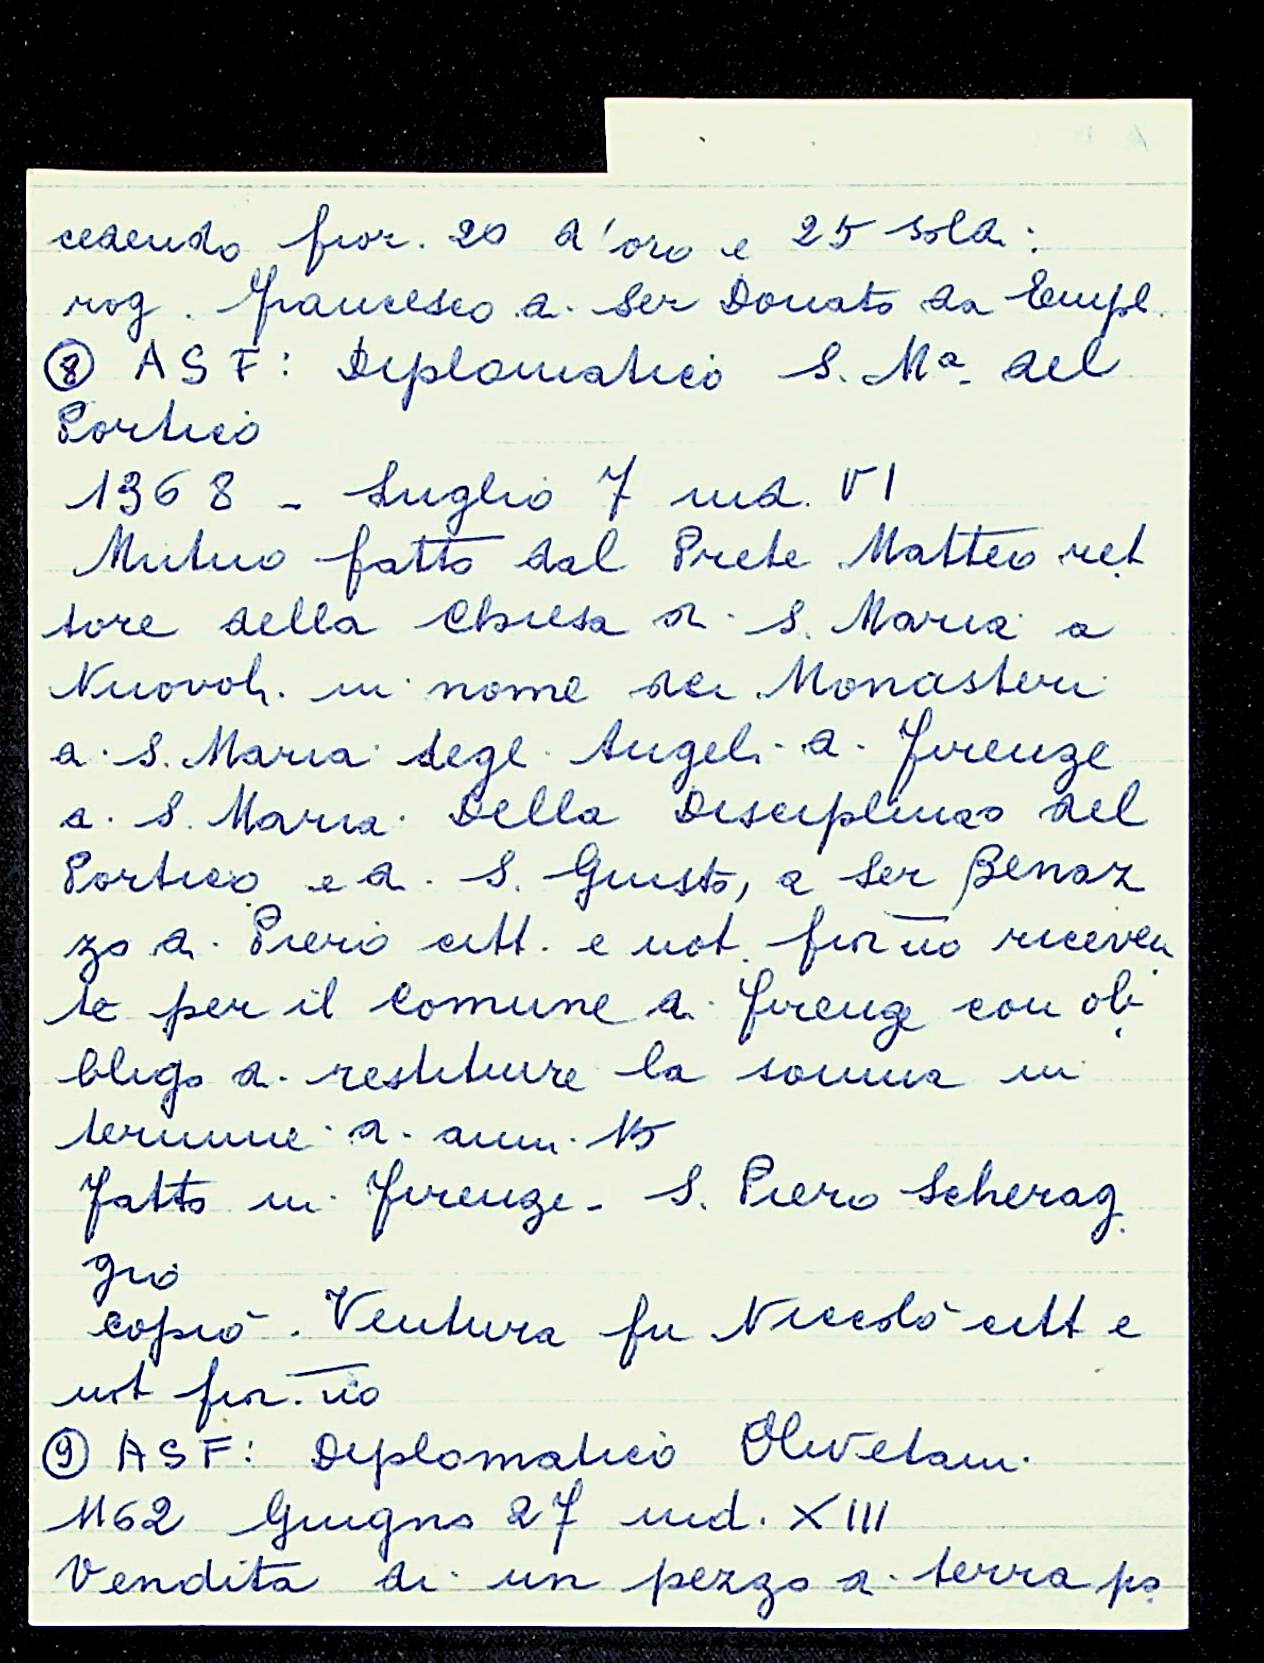 cedendo fior. 20 d'oro e 25 soldi
rog. Francesco di Ser Donato da Empl.
⑧ ASF: Diplomatico S. Mª del
Portico
1368 - Luglio 7 ind. VI
Mutuo fatto dal Prete Matteo ret
tore della Chiesa di S. Maria a
Nuovoli in nome dei Monasteri
di S. Maria degli Angeli di Firenze
di S. Maria della Disciplina del
Portico e di S. Giusto, a Ser Benaz
zo di Piero citt. e not. fior̅n̅o riceven
te per il Comune di Firenze con ob
bligo di restituire la somma in
termine di anni 15
Fatto in Firenze - S. Piero Scherag
gio
copiò. Ventura fu Niccolò citt e
not fior.n̅o
⑨ ASF: Diplomatico Olivetani
1162 Giugno 27 ind. XIII
Vendita di un pezzo di terra po